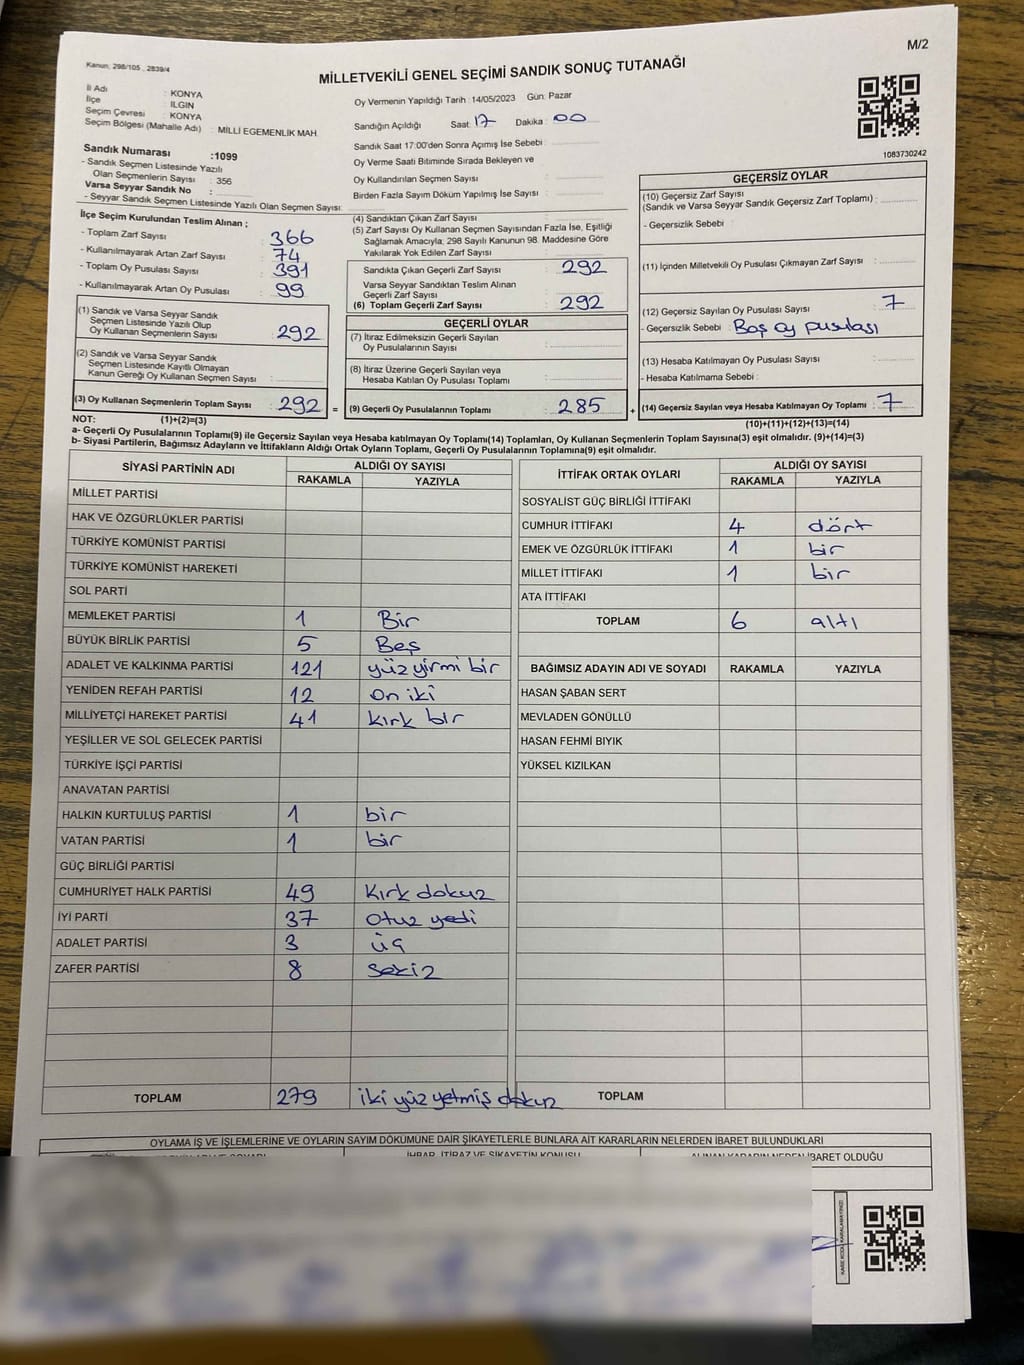 M/2
Kanun: 298/105 , 2839/4
MİLLETVEKİLİ GENEL SEÇİMİ SANDIK SONUÇ TUTANAĞI
İl Adı : KONYA
İlçe : ILGIN
Seçim Çevresi : KONYA
Seçim Bölgesi (Mahalle Adı) : MİLLİ EGEMENLİK MAH.
Oy Vermenin Yapıldığı Tarih :14/05/2023 Gün: Pazar
Sandığın Açıldığı Saat: 17 Dakika : 00
Sandık Saat 17:00'den Sonra Açımış İse Sebebi :
Oy Verme Saati Bitiminde Sırada Bekleyen ve
Oy Kullandırılan Seçmen Sayısı :
Birden Fazla Sayım Döküm Yapılmış İse Sayısı :
1083730242
Sandık Numarası :1099
- Sandık Seçmen Listesinde Yazılı
Olan Seçmenlerin Sayısı : 356
Varsa Seyyar Sandık No :
- Seyyar Sandık Seçmen Listesinde Yazılı Olan Seçmen Sayısı:
İlçe Seçim Kurulundan Teslim Alınan ;
- Toplam Zarf Sayısı : 366
- Kullanılmayarak Artan Zarf Sayısı : 74
- Toplam Oy Pusulası Sayısı : 391
- Kullanılmayarak Artan Oy Pusulası : 99
(1) Sandık ve Varsa Seyyar Sandık
Seçmen Listesinde Yazılı Olup
Oy Kullanan Seçmenlerin Sayısı : 292
(2) Sandık ve Varsa Seyyar Sandık
Seçmen Listesinde Kayıtlı Olmayan
Kanun Gereği Oy Kullanan Seçmen Sayısı :
(3) Oy Kullanan Seçmenlerin Toplam Sayısı : 292 =
(4) Sandıktan Çıkan Zarf Sayısı :
(5) Zarf Sayısı Oy Kullanan Seçmen Sayısından Fazla İse, Eşitliği
Sağlamak Amacıyla; 298 Sayılı Kanunun 98. Maddesine Göre
Yakılarak Yok Edilen Zarf Sayısı :
Sandıkta Çıkan Geçerli Zarf Sayısı : 292
Varsa Seyyar Sandıktan Teslim Alınan
Geçerli Zarf Sayısı :
(6) Toplam Geçerli Zarf Sayısı : 292
GEÇERLİ OYLAR
(7) İtiraz Edilmeksizin Geçerli Sayılan
Oy Pusulalarının Sayısı :
(8) İtiraz Üzerine Geçerli Sayılan veya
Hesaba Katılan Oy Pusulası Toplamı :
(9) Geçerli Oy Pusulalarının Toplamı : 285 +
GEÇERSİZ OYLAR
(10) Geçersiz Zarf Sayısı
(Sandık ve Varsa Seyyar Sandık Geçersiz Zarf Toplamı) :
- Geçersizlik Sebebi :
(11) İçinden Milletvekili Oy Pusulası Çıkmayan Zarf Sayısı :
(12) Geçersiz Sayılan Oy Pusulası Sayısı : 7
- Geçersizlik Sebebi : Boş oy pusulası
(13) Hesaba Katılmayan Oy Pusulası Sayısı :
- Hesaba Katılmama Sebebi :
(14) Geçersiz Sayılan veya Hesaba Katılmayan Oy Toplamı : 7
NOT: (1)+(2)=(3) (10)+(11)+(12)+(13)=(14)
a- Geçerli Oy Pusulalarının Toplamı(9) ile Geçersiz Sayılan veya Hesaba katılmayan Oy Toplamı(14) Toplamları, Oy Kullanan Seçmenlerin Toplam Sayısına(3) eşit olmalıdır. (9)+(14)=(3)
b- Siyasi Partilerin, Bağımsız Adayların ve İttifakların Aldığı Ortak Oyların Toplamı, Geçerli Oy Pusulalarının Toplamına(9) eşit olmalıdır.
SİYASİ PARTİNİN ADI ALDIĞI OY SAYISI
RAKAMLA YAZIYLA
MİLLET PARTİSİ
HAK VE ÖZGÜRLÜKLER PARTİSİ
TÜRKİYE KOMÜNİST PARTİSİ
TÜRKİYE KOMÜNİST HAREKETİ
SOL PARTİ
MEMLEKET PARTİSİ 1 Bir
BÜYÜK BİRLİK PARTİSİ 5 Beş
ADALET VE KALKINMA PARTİSİ 121 yüz yirmi bir
YENİDEN REFAH PARTİSİ 12 on iki
MİLLİYETÇİ HAREKET PARTİSİ 41 kırk bir
YEŞİLLER VE SOL GELECEK PARTİSİ
TÜRKİYE İŞÇİ PARTİSİ
ANAVATAN PARTİSİ
HALKIN KURTULUŞ PARTİSİ 1 bir
VATAN PARTİSİ 1 bir
GÜÇ BİRLİĞİ PARTİSİ
CUMHURİYET HALK PARTİSİ 49 Kırk dokuz
İYİ PARTİ 37 otuz yedi
ADALET PARTİSİ 3 üç
ZAFER PARTİSİ 8 sekiz
TOPLAM 279 iki yüz yetmiş dokuz
İTTİFAK ORTAK OYLARI ALDIĞI OY SAYISI
RAKAMLA YAZIYLA
SOSYALİST GÜÇ BİRLİĞİ İTTİFAKI
CUMHUR İTTİFAKI 4 dört
EMEK VE ÖZGÜRLÜK İTTİFAKI 1 bir
MİLLET İTTİFAKI 1 bir
ATA İTTİFAKI
TOPLAM 6 altı
BAĞIMSIZ ADAYIN ADI VE SOYADI RAKAMLA YAZIYLA
HASAN ŞABAN SERT
MEVLADEN GÖNÜLLÜ
HASAN FEHMİ BIYIK
YÜKSEL KIZILKAN
TOPLAM
OYLAMA İŞ VE İŞLEMLERİNE VE OYLARIN SAYIM DÖKÜMÜNE DAİR ŞİKAYETLERLE BUNLARA AİT KARARLARIN NELERDEN İBARET BULUNDUKLARI
İHBAR, İTİRAZ VE ŞİKAYETİN KONUSU
ALINAN KARARIN NEDEN İBARET OLDUĞU